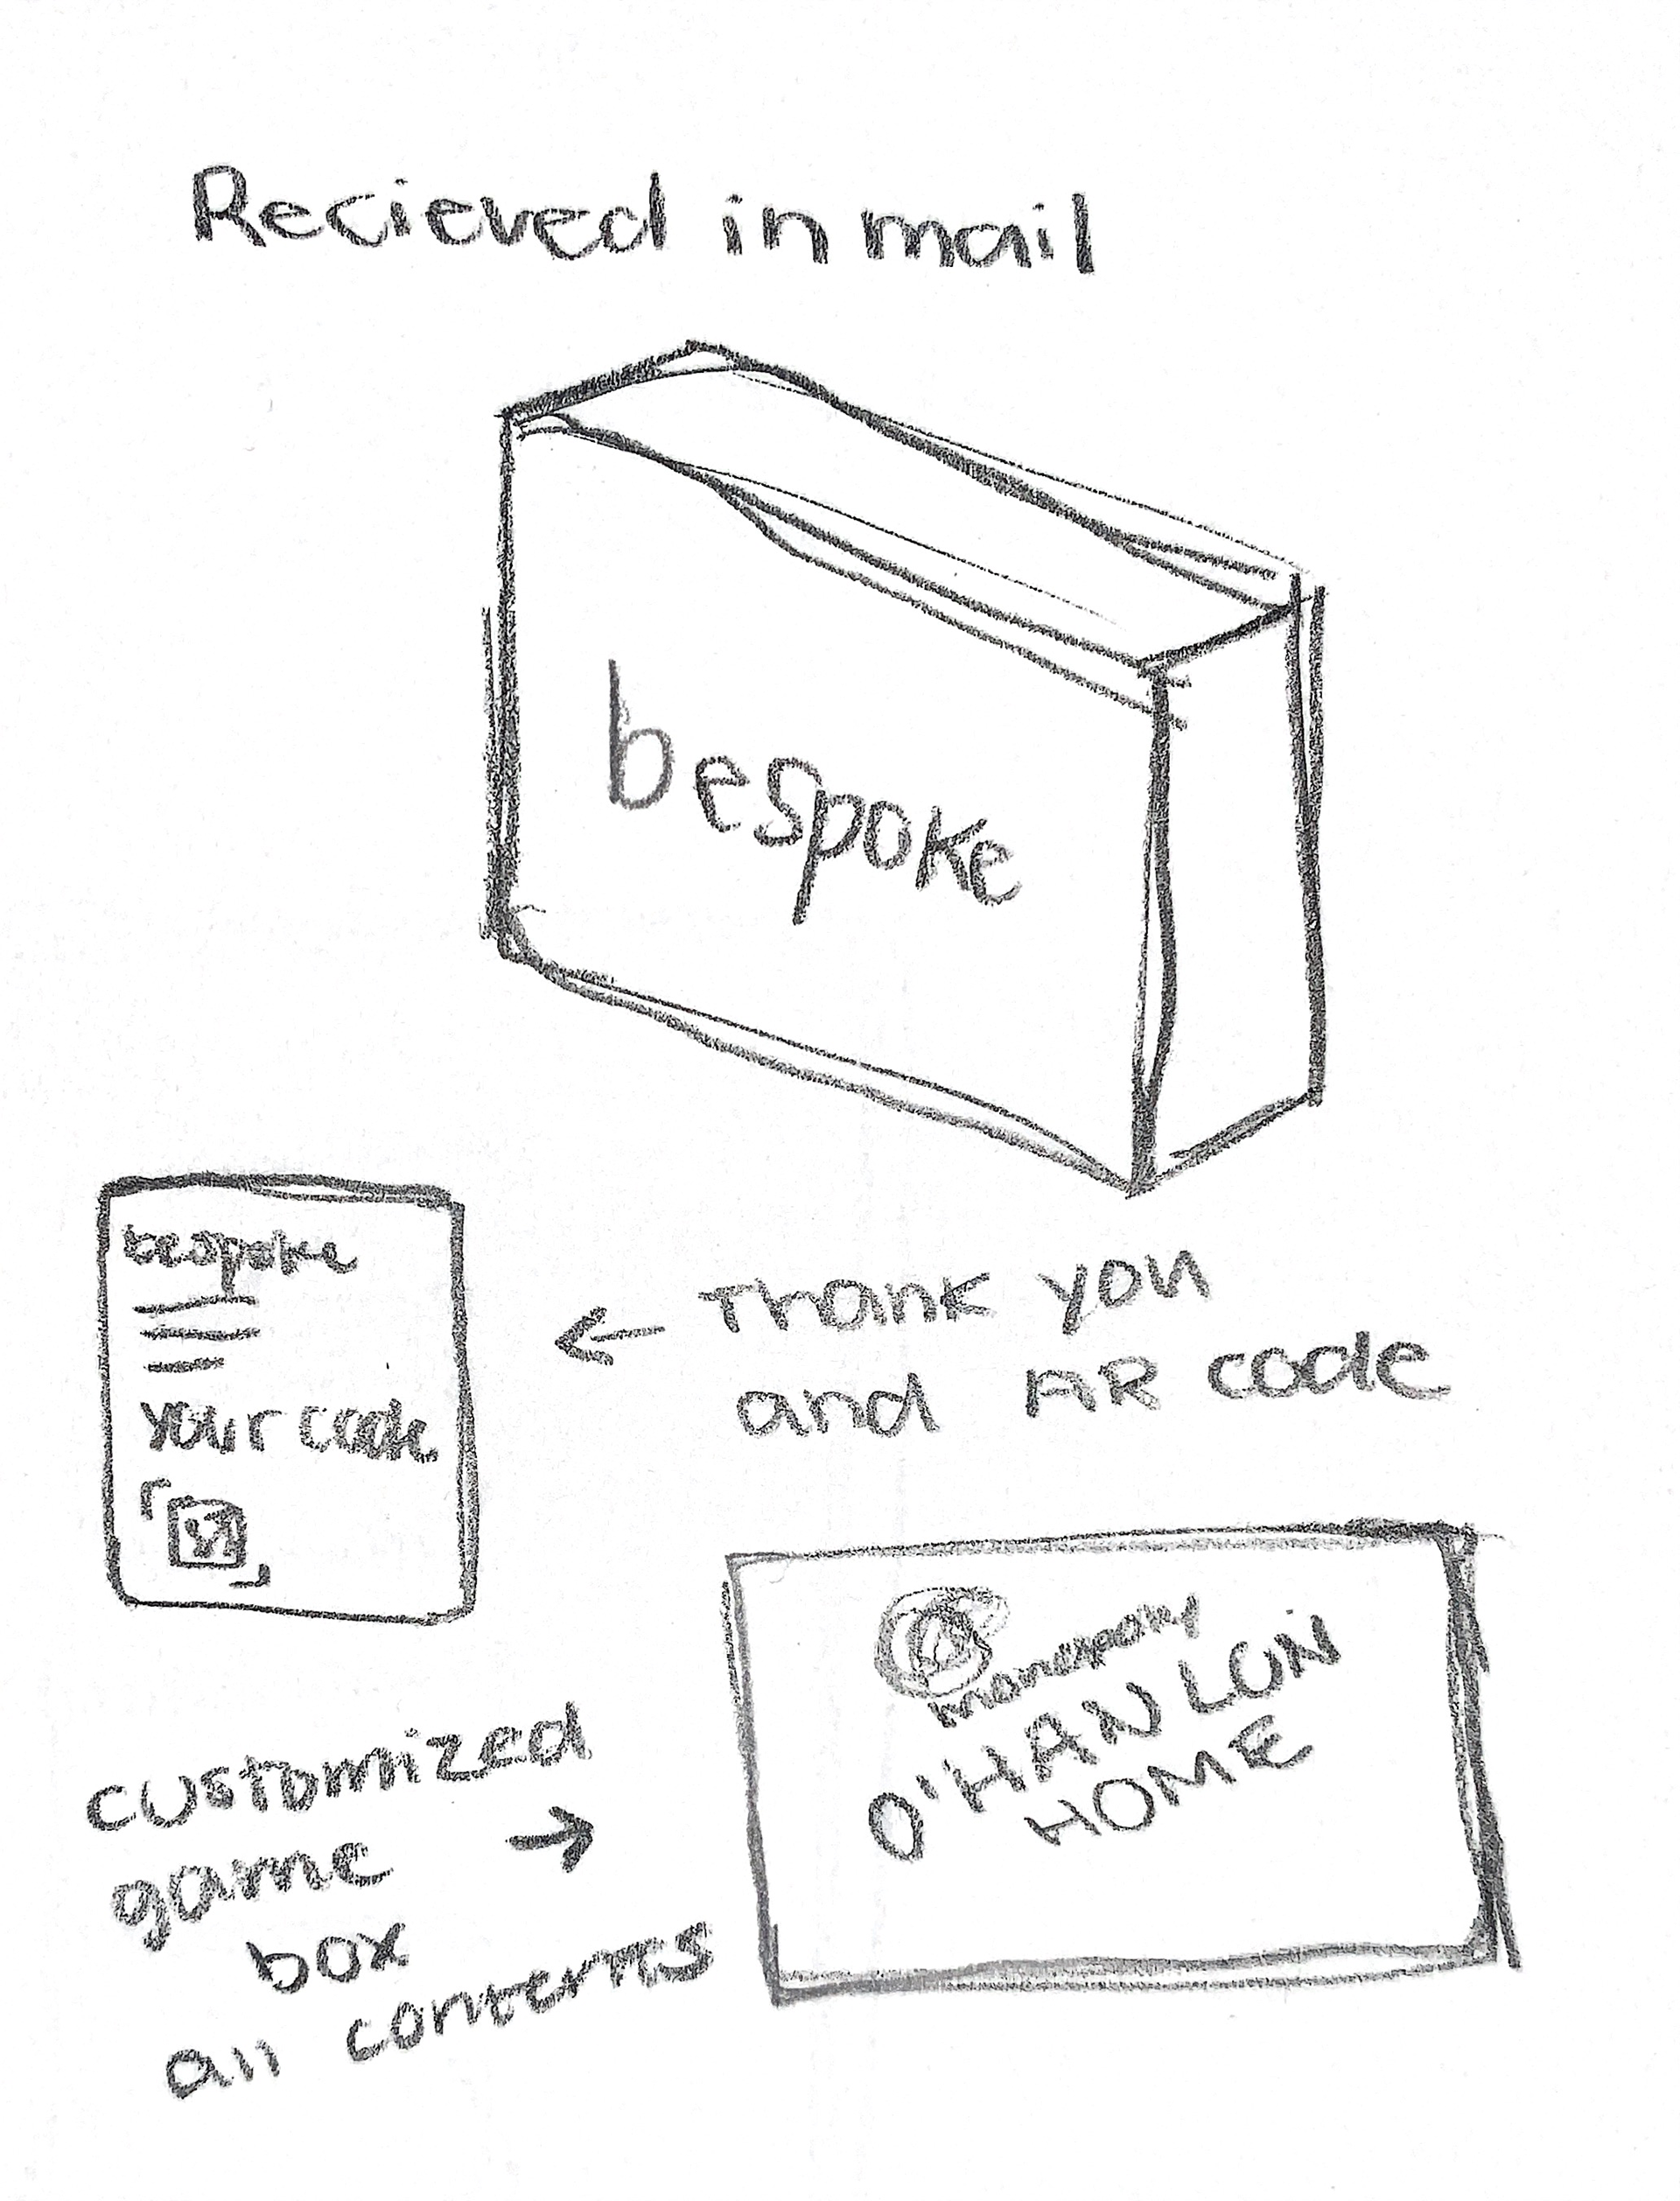 Recieved in mail
bespoke
bespoke
your code
← Thank you
and AR code
monopoly
O'HANLON
HOME
customized
game →
box
all contents